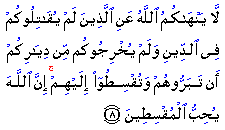 لَّا يَنْهَىٰكُمُ ٱللَّهُ عَنِ ٱلَّذِينَ لَمْ يُقَـٰتِلُوكُمْ
فِى ٱلدِّينِ وَلَمْ يُخْرِجُوكُم مِّن دِيَـٰرِكُمْ
أَن تَبَرُّوهُمْ وَتُقْسِطُوٓا۟ إِلَيْهِمْ ۚ إِنَّ ٱللَّهَ
يُحِبُّ ٱلْمُقْسِطِينَ ﴿٨﴾